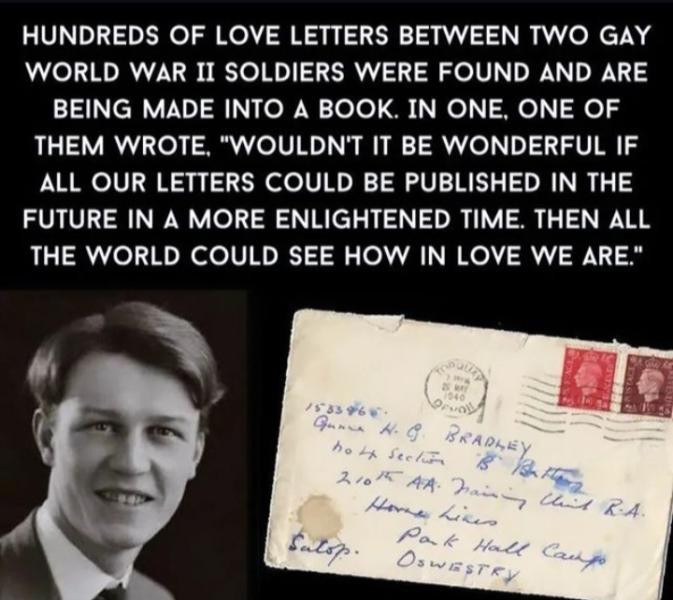 HUNDREDS OF LOVE LETTERS BETWEEN TWO GAY
WORLD WAR II SOLDIERS WERE FOUND AND ARE
BEING MADE INTO A BOOK. IN ONE, ONE OF
THEM WROTE, "WOULDN'T IT BE WONDERFUL IF
ALL OUR LETTERS COULD BE PUBLISHED IN THE
FUTURE IN A MORE ENLIGHTENED TIME. THEN ALL
THE WORLD COULD SEE HOW IN LOVE WE ARE."
TORQUAY
1940
DEVON
Gunner H. G. BRADLEY
No 4 Section B
210th AA. Training Unit R.A.
Home Lines
Park Hall Camp
OSWESTRY
Salop.